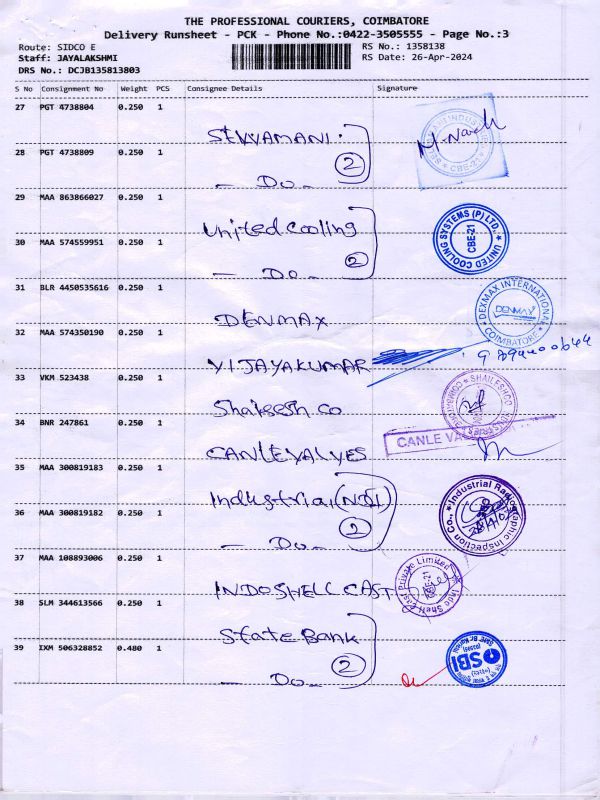 THE PROFESSIONAL COURIERS, COIMBATORE
Delivery Runsheet - PCK - Phone No.:0422-3505555 - Page No.:3
Route: SIDCO E
RS No.: 1358138
Staff: JAYALAKSHMI
RS Date: 26-Apr-2024
DRS No.: DCJB135813803
S No Consignment No Weight PCS Consignee Details Signature
27 PGT 4738804 0.250 1
SELVAMANI.
M. Nach
28 PGT 4738809 0.250 1
2
- Do -
29 MAA 863866027 0.250 1
United cooling
UNITED COOLING SYSTEMS (P) LTD., CBE-21
30 MAA 574559951 0.250 1
2
- Do -
31 BLR 4450535616 0.250 1
DENMAX
DEXMAX INTERNATIONAL DENMAX COIMBATORE
32 MAA 574350190 0.250 1
VIJAYAKUMAR
33 VKM 523438 0.250 1
Shaleesh co
SHAILESHCO
34 BNR 247861 0.250 1
CANLEVALVES
CANLE VA
35 MAA 300819183 0.250 1
Industrial (NDI)
Industrial Radiographic Inspection Co.,
36 MAA 300819182 0.250 1
2
- Do -
37 MAA 108893006 0.250 1
INDOSHELL CAST
Indo Shell Cast Private Limited E-21
38 SLM 344613566 0.250 1
State Bank
39 IXM 506328852 0.480 1
2
- Do -
SBI